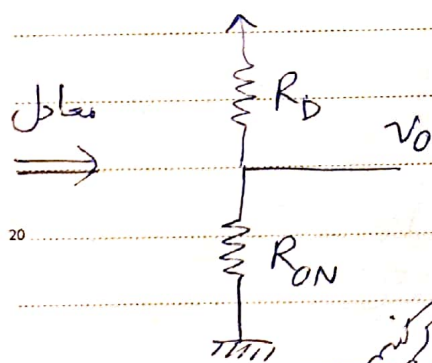 معادل
R_D
v_o
20
R_ON